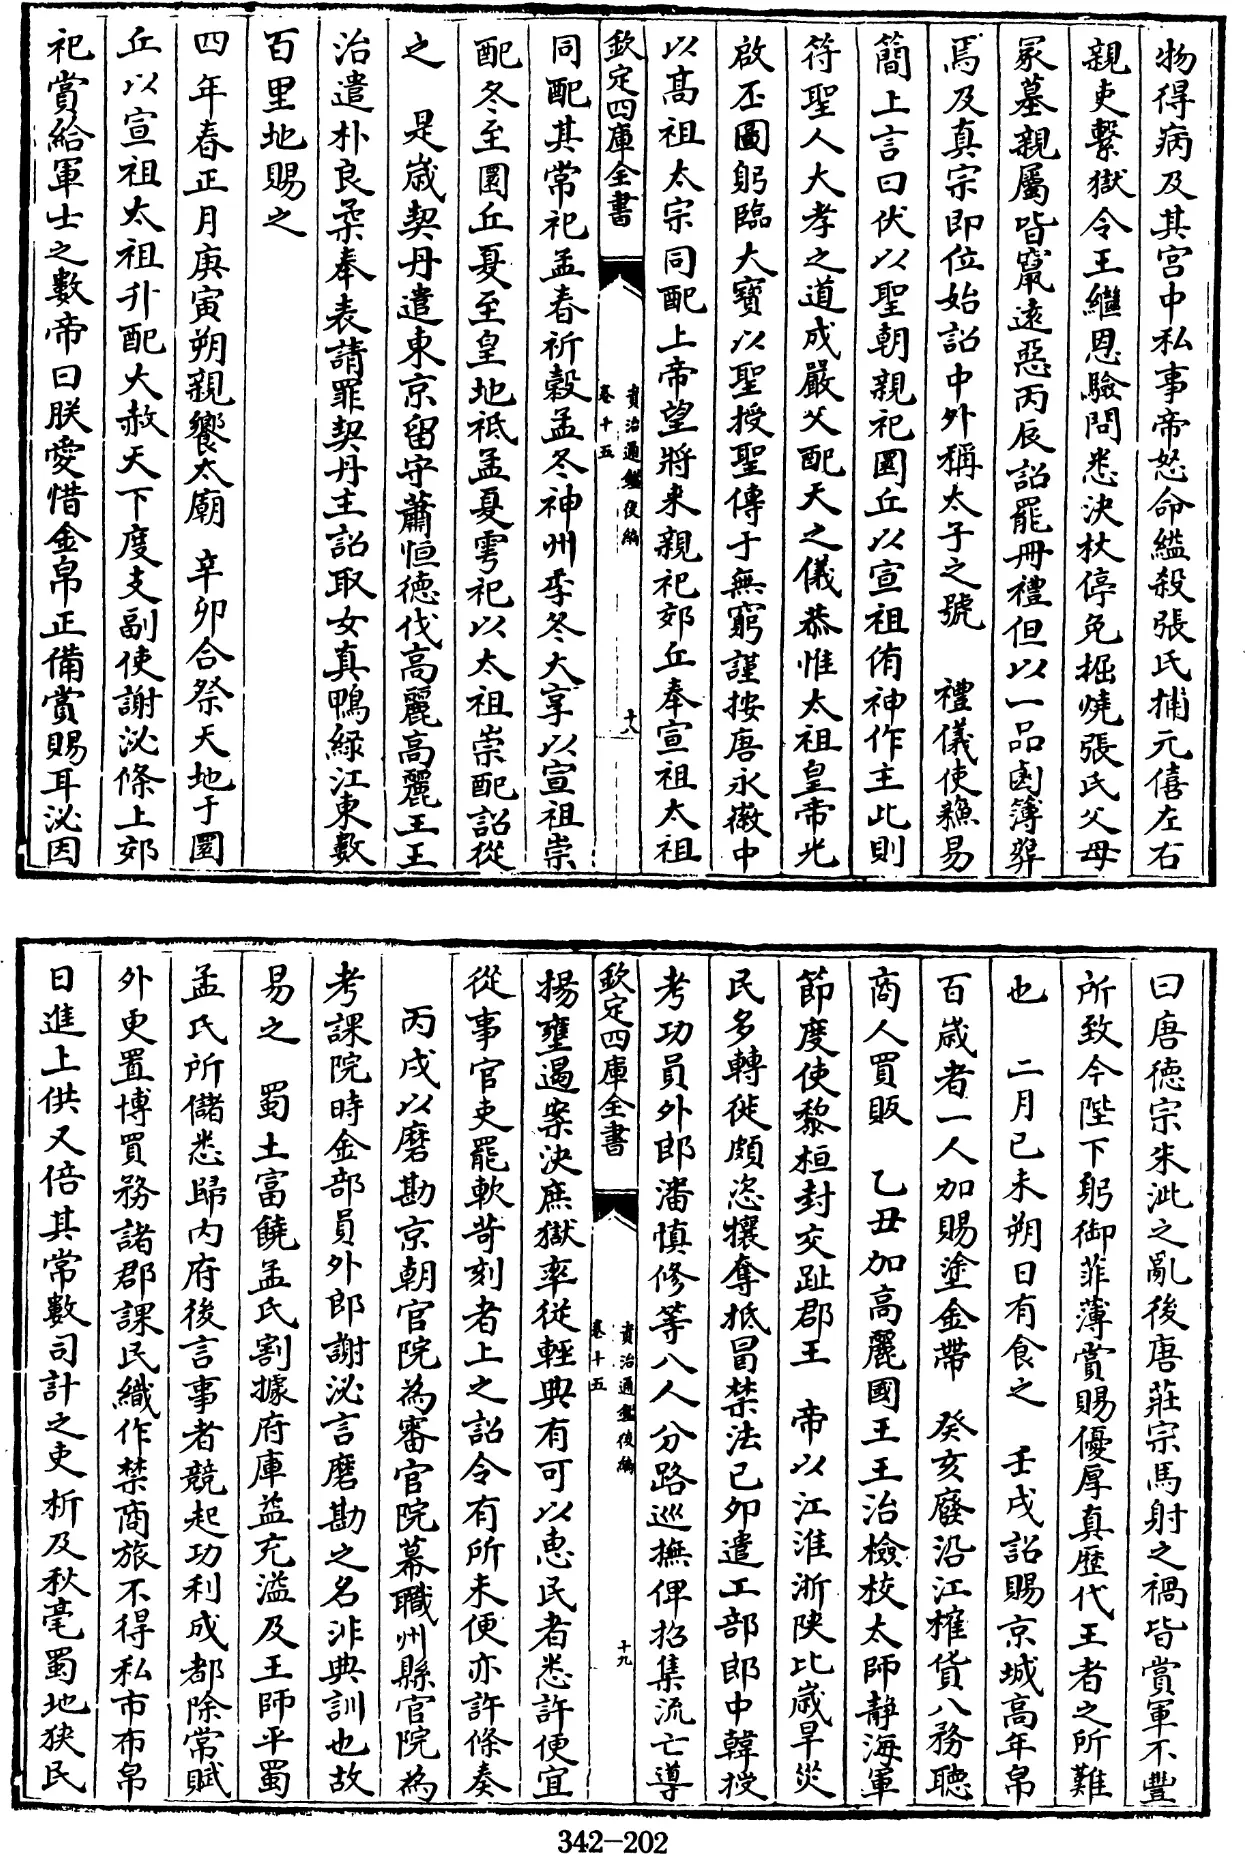 物得病及其宫中私事帝怒命縊殺張氏捕元僖左右
親吏繫獄令王繼恩驗問悉決杖停免掘燒張氏父母
冢墓親屬皆竄遠惡丙辰詔罷冊禮但以一品鹵簿𦵏
焉及真宗即位始詔中外稱太子之號　禮儀使蘇易
簡上言曰伏以聖朝親祀圜丘以宣祖侑神作主此則
符聖人大孝之道成嚴父配天之儀恭惟太祖皇帝光
啟丕圖躬臨大寶以聖授聖傳于無窮謹按唐永徽中
以高祖太宗同配上帝望將来親祀郊丘奉宣祖太祖
欽定四庫全書　資治通鑑後編 卷十五　十八
同配其常祀孟春祈穀孟冬神州季冬大享以宣祖崇
配冬至圜丘夏至皇地祇孟夏雩祀以太祖崇配詔從
之　是嵗契丹遣東京留守蕭恒德伐高麗高麗王王
治遣朴良柔奉表請罪契丹主詔取女真鴨綠江東數
百里地賜之
四年春正月庚寅朔親饗太廟　辛卯合祭天地于圜
丘以宣祖太祖升配大赦天下度支副使謝泌條上郊
祀賞給軍士之數帝曰朕愛惜金帛正備賞賜耳泌因
曰唐徳宗朱泚之亂後唐莊宗馬射之禍皆賞軍不豐
所致今陛下躬御菲薄賞賜優厚真歴代王者之所難
也　二月已未朔日有食之　壬戌詔賜京城高年帛
百嵗者一人加賜塗金帶　癸亥廢沿江榷貨八務聽
商人買販　乙丑加高麗國王王治檢校太師靜海軍
節度使黎桓封交趾郡王　帝以江淮浙陜比嵗旱災
民多轉徙頗恣攘奪抵冒禁法已卯遣工部郎中韓授
考功員外郎潘慎修等八人分路巡撫俾招集流亡導
欽定四庫全書　資治通鑑後編 卷十五　十九
揚壅遏案決庶獄率從輕典有可以惠民者悉許便宜
從事官吏罷軟苛刻者上之詔令有所未便亦許條奏
丙戌以磨勘京朝官院為審官院幕職州縣官院為
考課院時金部員外郎謝泌言磨勘之名非典訓也故
易之　蜀土富饒孟氏割據府庫益充溢及王師平蜀
孟氏所儲悉歸内府後言事者競起功利成都除常賦
外更置博買務諸郡課民織作禁商旅不得私市布帛
日進上供又倍其常數司計之吏析及秋毫蜀地狹民
342-202